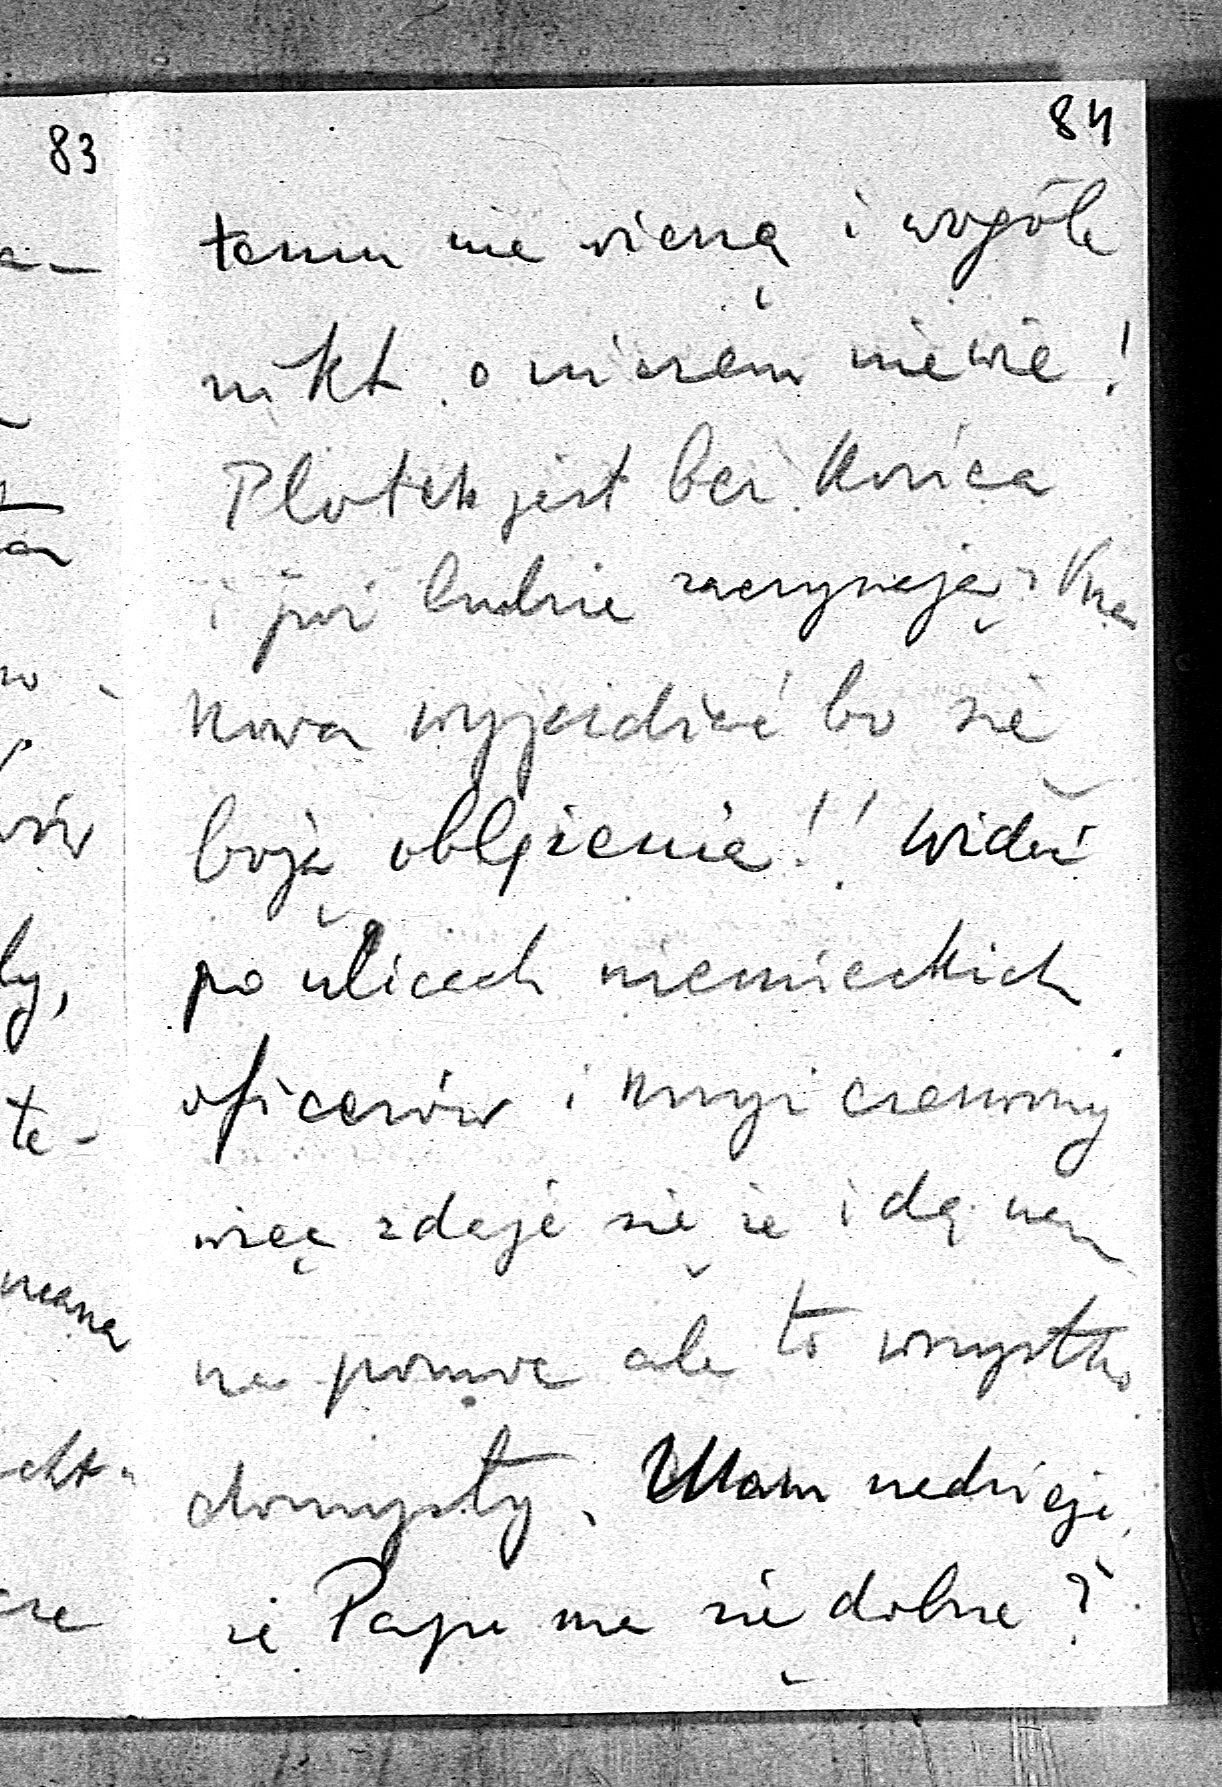 83
84
temu nie wierzą i wogóle
nikt o niczem nie wie!
Plotek jest bez końca
i już ludzie zaczynają z Kra
kowa wyjeżdżać bo się
boją oblężenia!! Widać
po ulicach niemieckich
oficerów i Krzyż czerwony
więc zdaje się że idą nam
na pomoc ale to wszystko
domysły. Mam nadzieję
że Papa ma się dobrze?